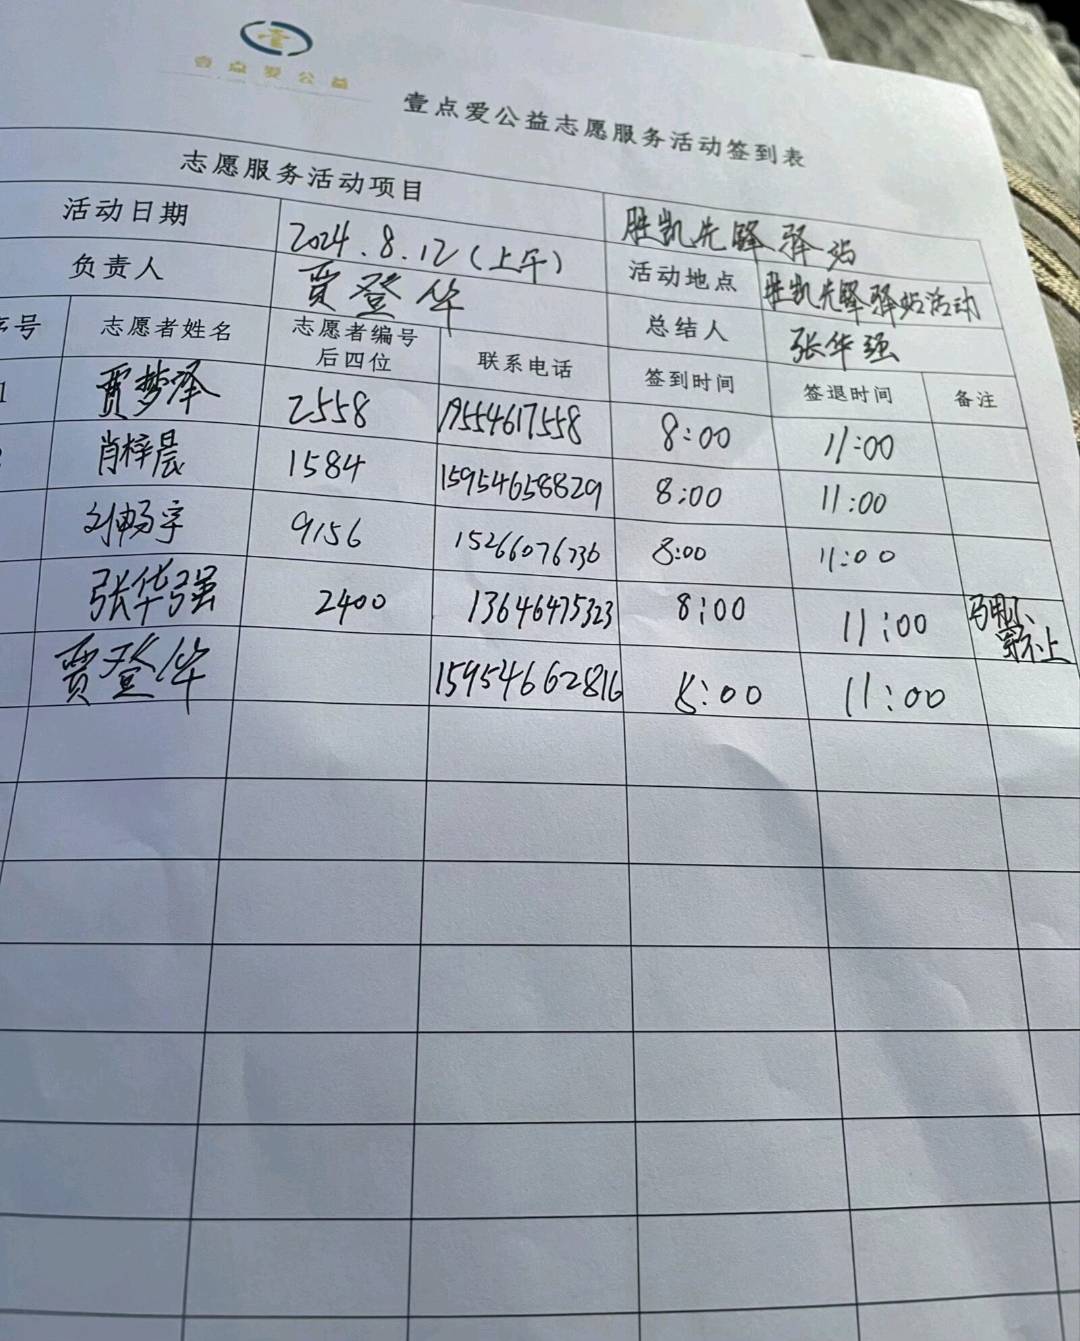 壹点爱公益
壹点爱公益志愿服务活动签到表
志愿服务活动项目 胜凯先锋驿站
活动日期 2024.8.12(上午) 活动地点 胜凯先锋驿站活动
负责人 贾登华 总结人 张华强
序号 志愿者姓名 志愿者编号后四位 联系电话 签到时间 签退时间 备注
1 贾梦泽 2558 19554617558 8:00 11:00
肖梓晨 1584 15954658829 8:00 11:00
刘畅宇 9156 15266076736 8:00 11:00
张华强 2400 13646475323 8:00 11:00 穿不上
贾登华 15954662816 8:00 11:00